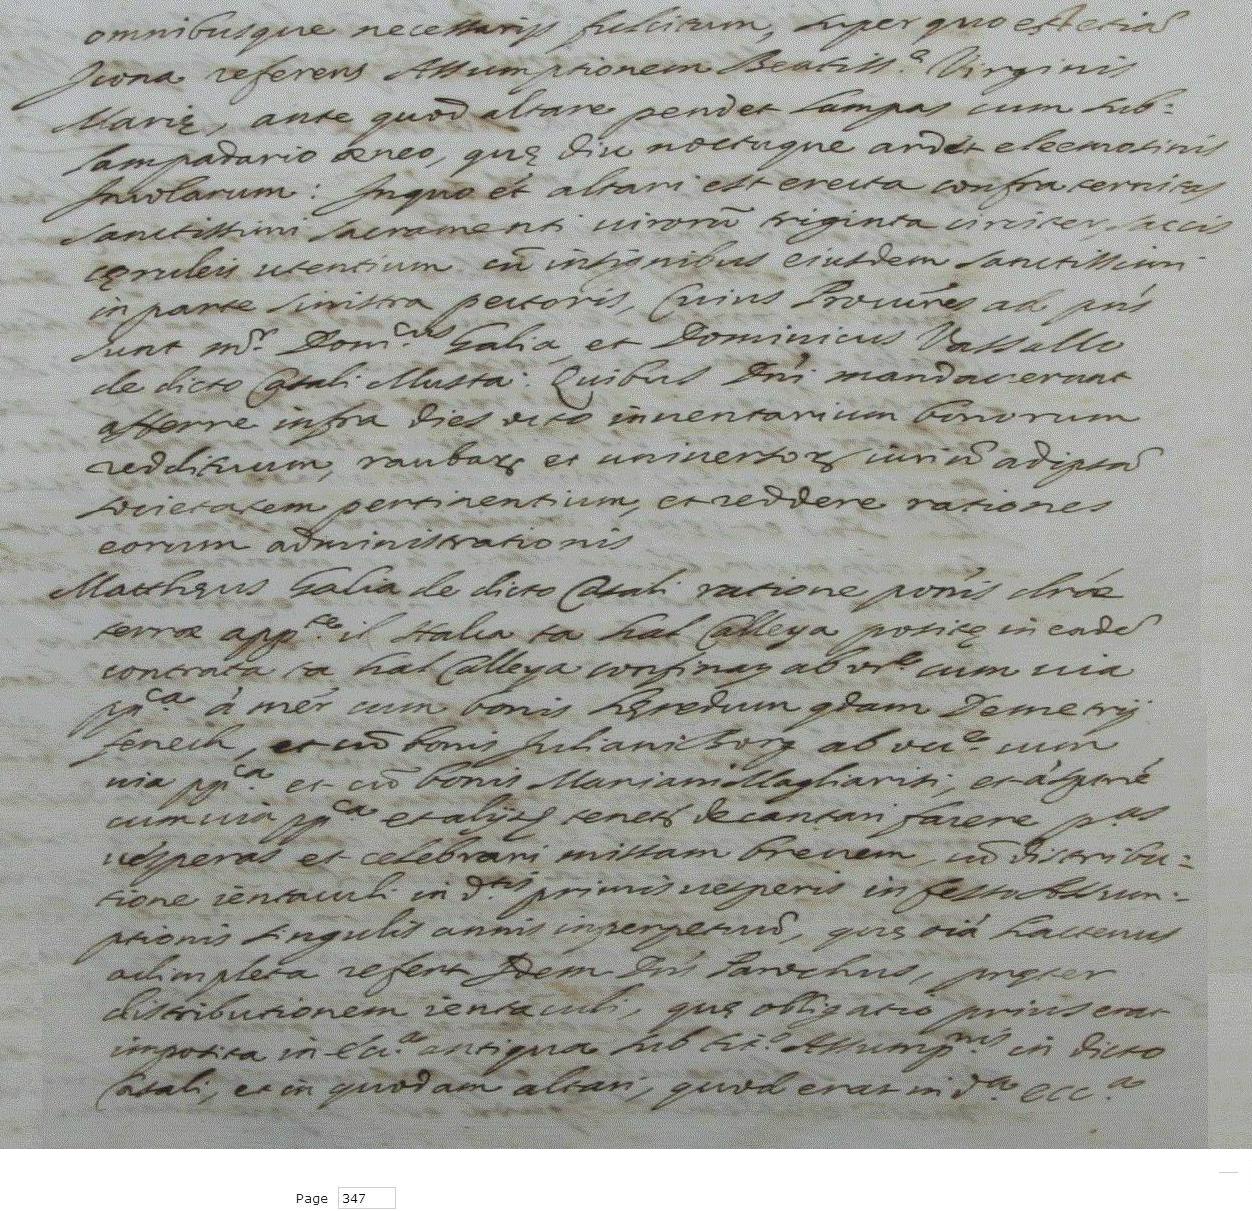 omnibusque necessarijs fulcitum, super quo est etiā
Jcona referens Assumptionem Beatiss.ᵉ Virginis
Marię, ante quod altare pendet lampas cum sub=
lampadario æneo, quę diu noctuque ardet eleemosinis
Jncolarum: Jn quo et altari est erecta confraternitas
sanctissimi sacramenti uirorū triginta circiter, saccis
cęruleis utentium cū insignibus eiusdem sanctissimi
in parte sinistra pectoris, Cuius Procūres ad pn̄s
sunt mʳ. Domᶜᵘˢ Galia, et Dominicus Vassallo
de dicto Casali Musta: Quibus Dn̄i mandauerunt
afferre infra dies octo inuentarium bonorum
reddituum, raubarꝝ et uniuersorꝝ iuriū ad ipsā
societatem pertinentium, et reddere rationes
eorum administrationis
Matthęus Galia de dicto Casali ratione pon̄is clrāę
terræ appᵗᵉ. il Halca ta hal Calleya positę in eadē
contrata ta hal Calleya confinaꝝ ab orᵗᵉ cum uia
ppᶜᵃ. à mēr cum bonis hęredum qdam Demetrij
fenech, et cū bonis Juliani Borg ab occᵉ. cum
uia ppᶜᵃ. et cū bonis Mariani Magliariti, et à sptriē
cum uia ppᶜᵃ et alijs tenetr decantari facere pᵃˢ
uesperas et celebrari missam breuem, cū distribu=
tione ientaculi in dᵗⁱˢ primis uesperis in festo Assum=
ptionis singulis annis inperpetuū, quę oīa hactenus
adimpleta refert Jdem Dn̄s Parochus, pręter
distributionem ientaculi, quę obligatio prius erat
imposita in Eccᵃ. antiqua sub titᵒ. Assumpⁿⁱˢ. in dicto
Casali, et in quodam altari, quod erat in dᵃ. eccᵃ.
Page 347